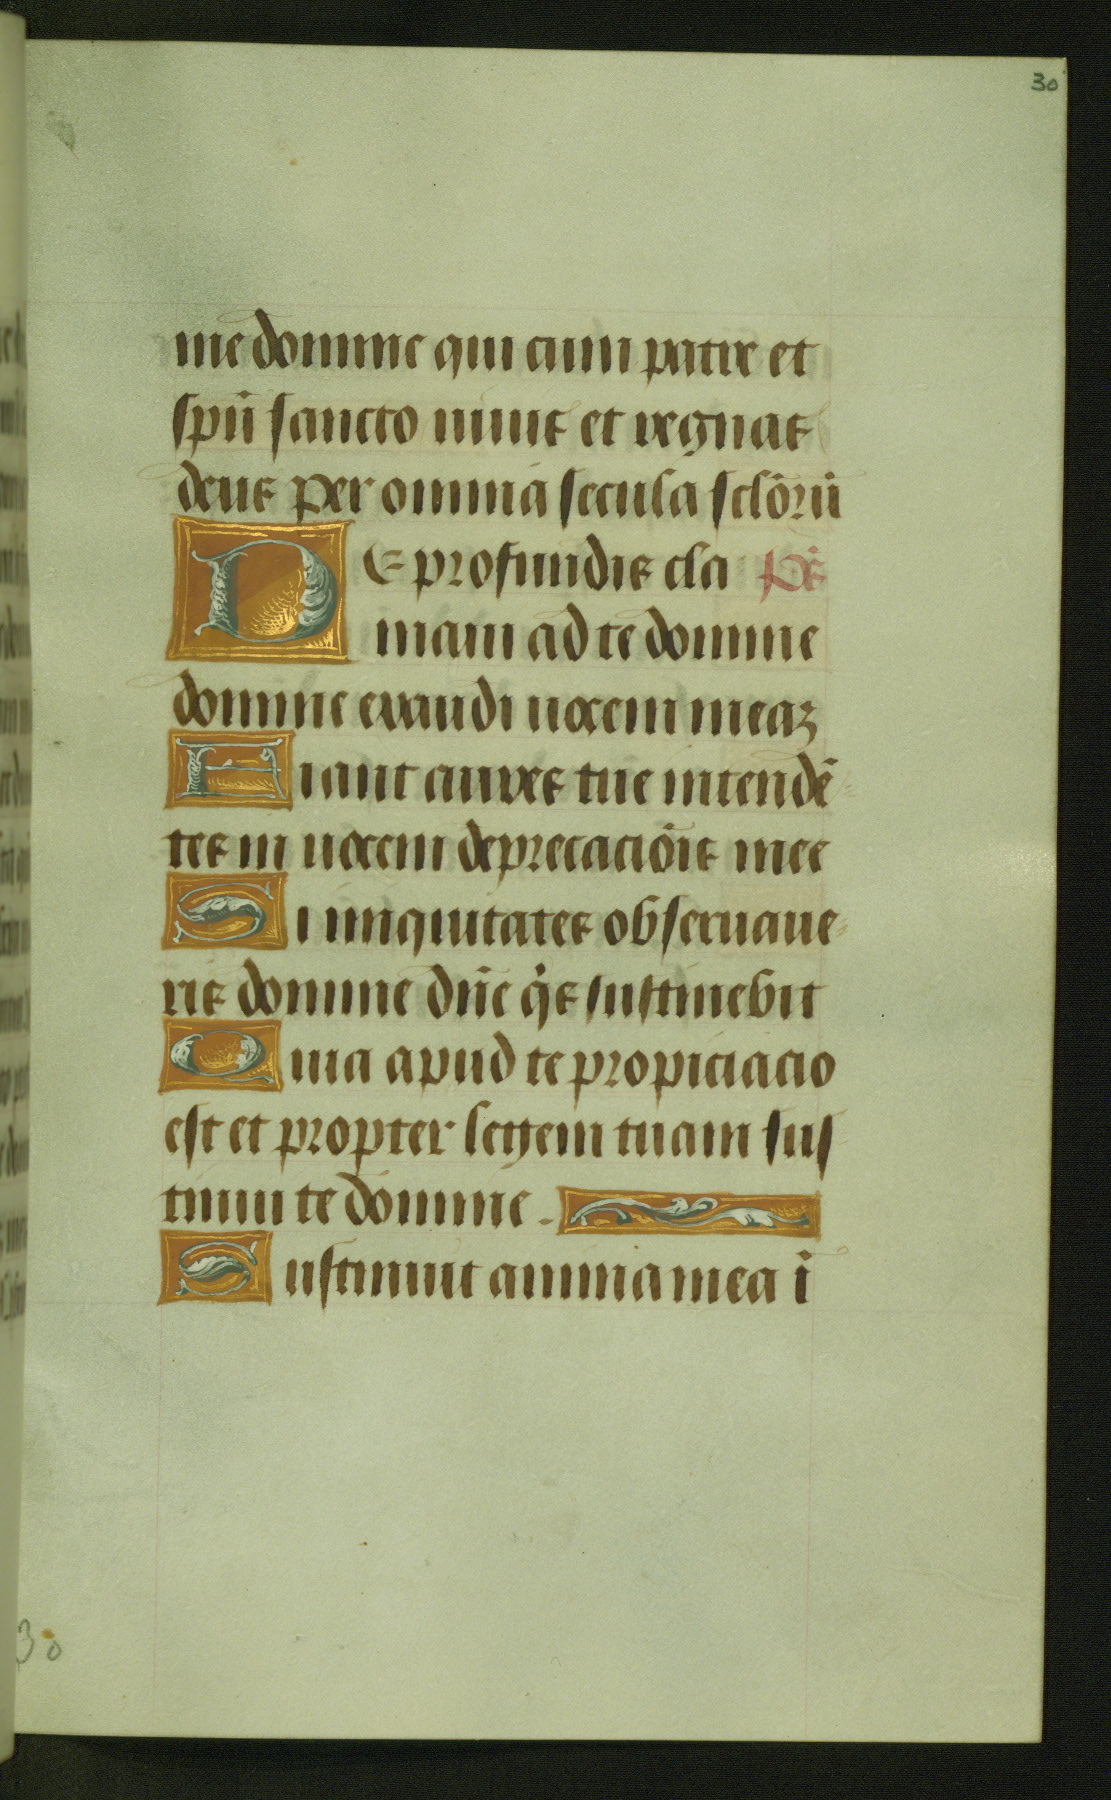 30
me domine qui cum patre et
spū sancto viuis et regnas
deus per omnia secula sclōrū
DE profundis cla pſ̄
maui ad te domine
domine exaudi uocem meaꝫ
Fiant aures tue intendē
tes in uocem deprecaciōis mee
Si iniquitates obseruaue
ris domine dn̄e qͥs sustinebit
Quia apud te propiciacio
est et propter legem tuam sus
tinui te domine.
Sustinuit anima mea ī
30